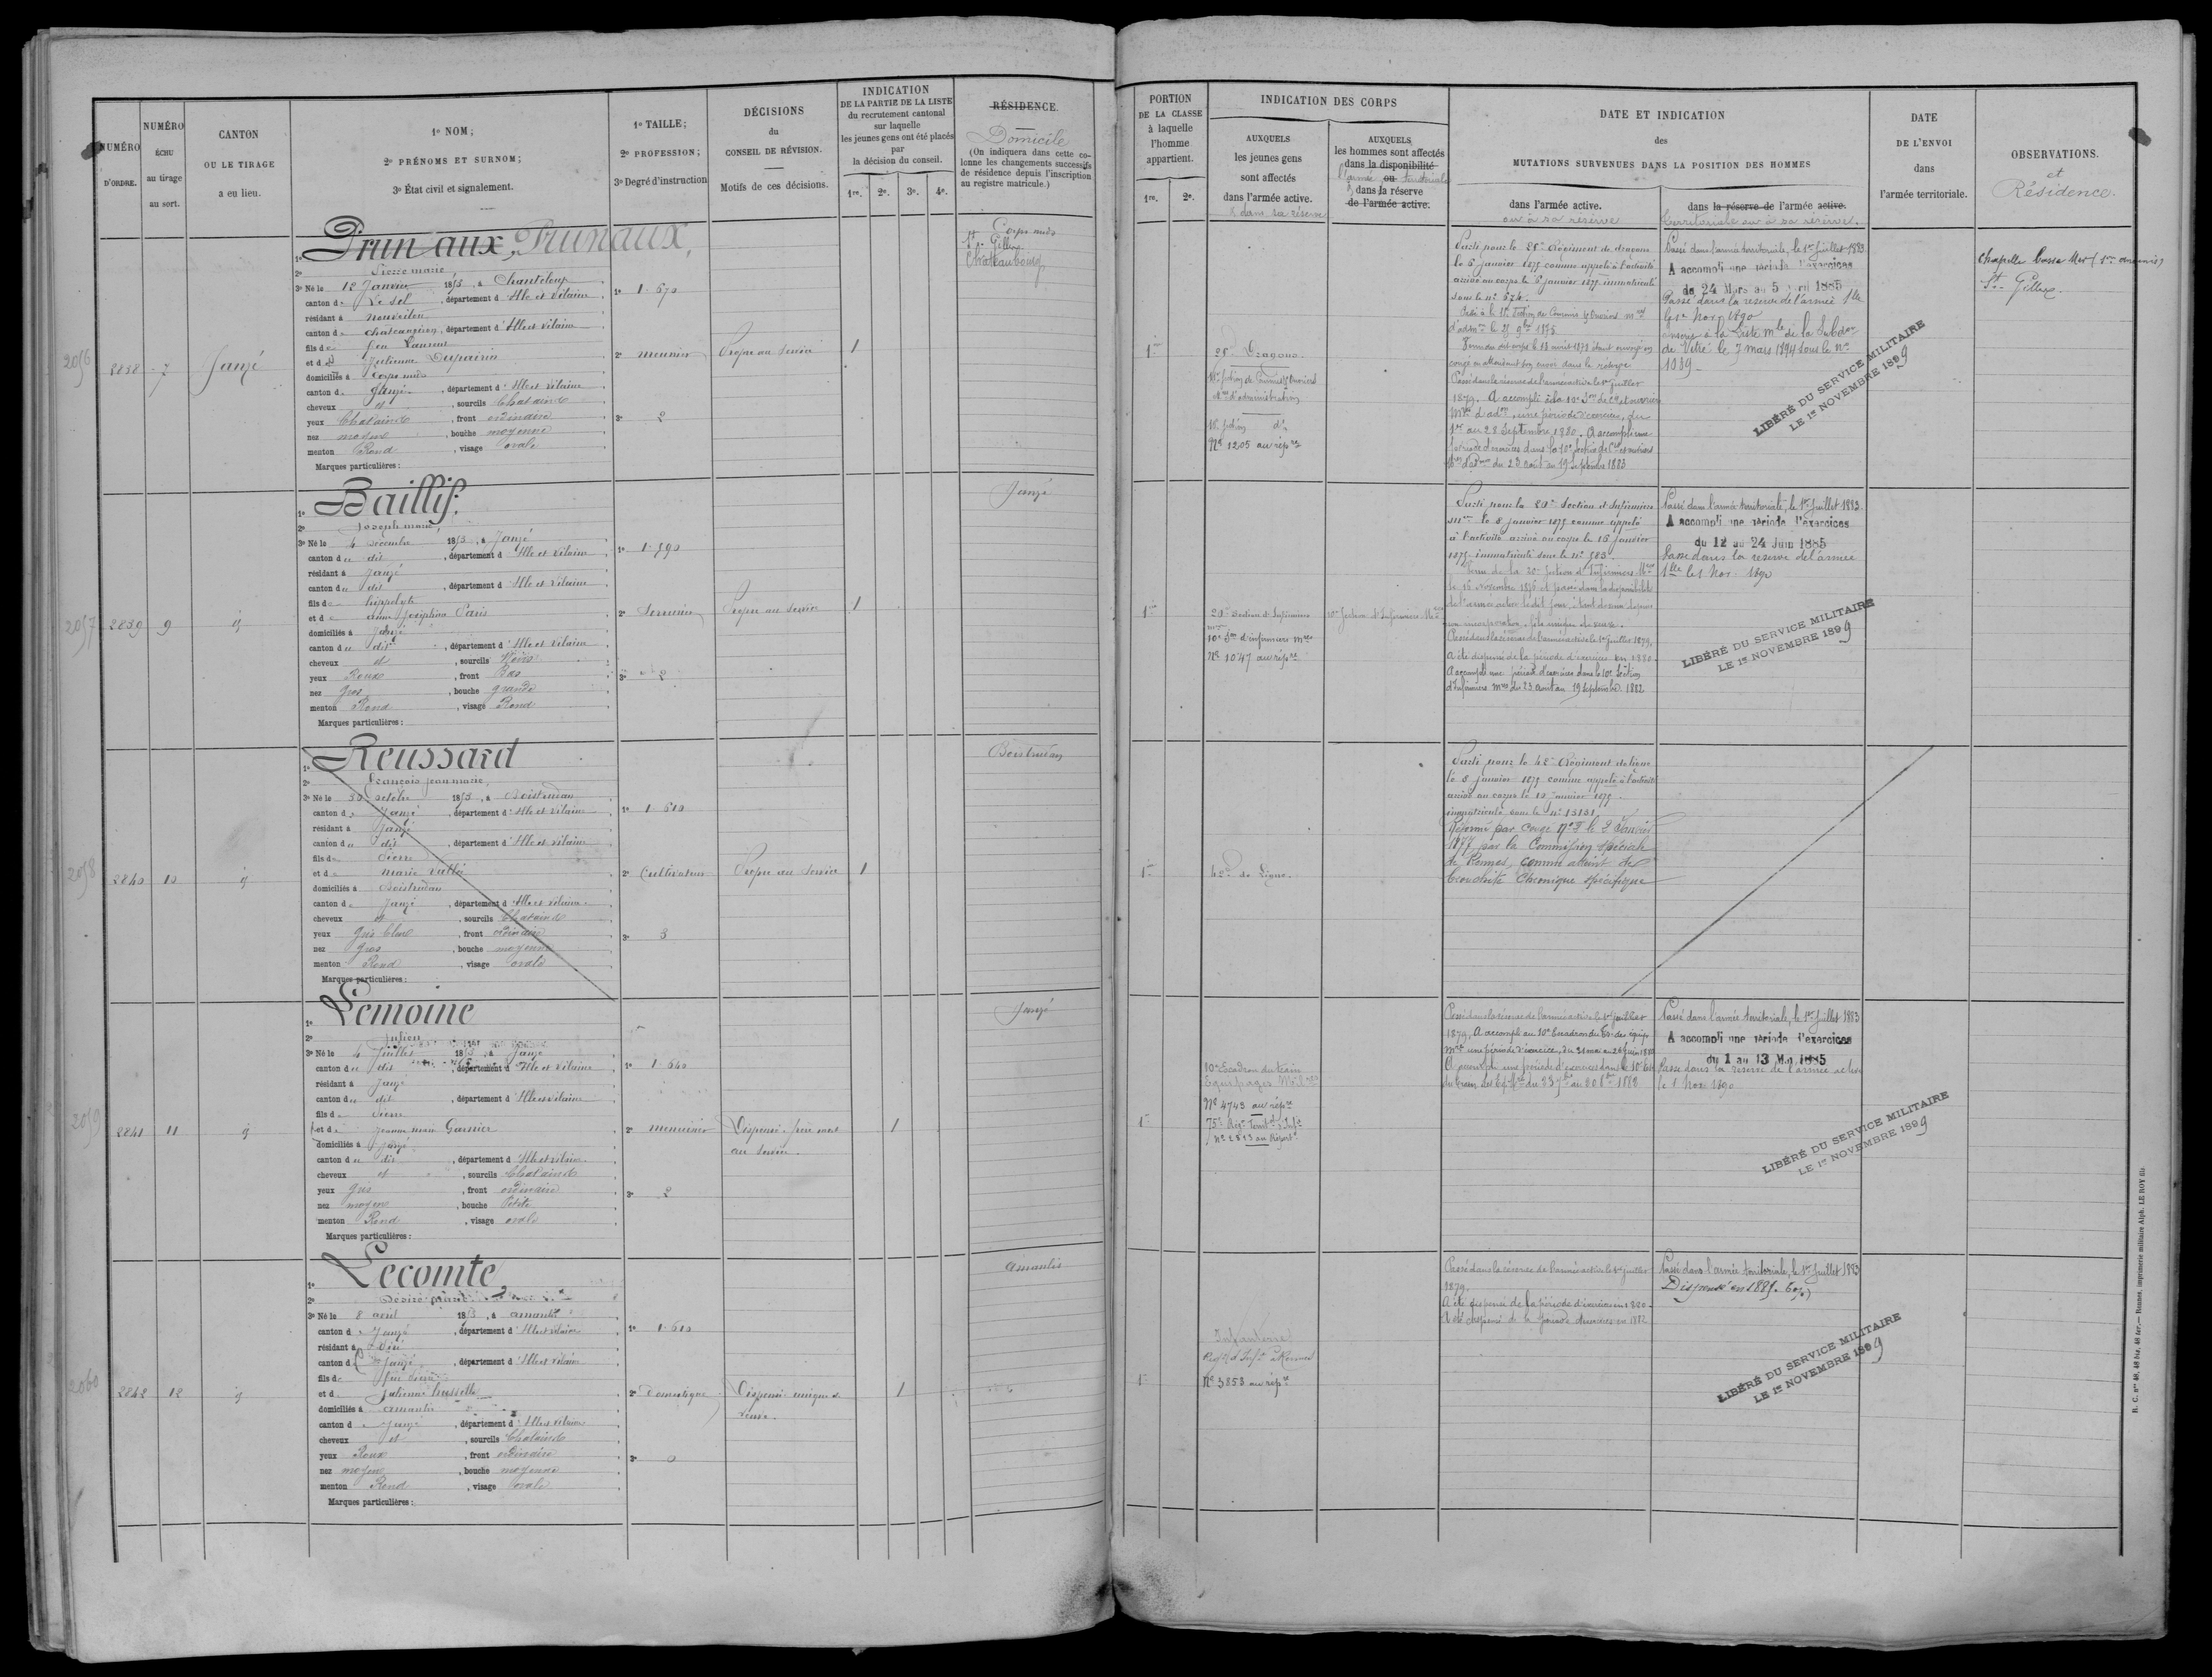 NUMÉRO D'ORDRE.
NUMÉRO ÉCHU au tirage au sort.
CANTON OU LE TIRAGE a eu lieu.
1º NOM;
2º PRÉNOMS ET SURNOM;
3º État civil et signalement.
1º TAILLE;
2º PROFESSION;
3º Degré d'instruction
DÉCISIONS du CONSEIL DE RÉVISION.
Motifs de ces décisions.
INDICATION DE LA PARTIE DE LA LISTE du recrutement cantonal sur laquelle les jeunes gens ont été placés par la décision du conseil.
1re. 2e. 3e. 4e.
RÉSIDENCE.
Domicile
(On indiquera dans cette colonne les changements successifs de résidence depuis l'inscription au registre matricule.)
PORTION DE LA CLASSE à laquelle l'homme appartient.
1re. 2e.
INDICATION DES CORPS
AUXQUELS les jeunes gens sont affectés dans l'armée active.
& dans sa réserve
AUXQUELS les hommes sont affectés dans la disponibilité ou
l'armée territoriale
& dans la réserve de l'armée active.
DATE ET INDICATION des MUTATIONS SURVENUES DANS LA POSITION DES HOMMES
dans l'armée active.
ou à sa réserve
dans la réserve de l'armée active.
territoriale ou à sa réserve.
DATE DE L'ENVOI dans l'armée territoriale.
OBSERVATIONS.
et
Résidence.
2056
2838
7
Janzé
Prunaux, Prunaux,
Pierre marie
3º Né le 12 Janvier 1853, à Chanteloup
canton de Le Sel, département d'Ille et Vilaine
résidant à Nouvoitou
canton de Châteaugiron, département d'Ille et Vilaine
fils de feu Laurent
et de Julienne Duparin
domiciliés à Corps nuds
canton de Janzé, département d'Ille et Vilaine
cheveux et, sourcils Chatains
yeux Chatains, front ordinaire
nez moyen, bouche moyenne
menton Rond, visage ovale
Marques particulières:
1º 1.670
2º meunier
3º 2
Propre au service
1
Corps nuds
St Gilles
Chateaubourg
1re
25e Dragons.
Nº 1205 au répre
Parti pour le 25e Régiment de dragons
le 6 janvier 1875 comme appelé à l'activité
arrivé au corps le 6 janvier 1875 immatriculé
sous le nº 674.
Passé dans la réserve de l'armée active le 1er juillet
1879. A accompli à la 10e Son de Cis et ouvriers
Mres d'adon, une période d'exercices, du
1er au 28 Septembre 1880. A accompli une
période d'exercices dans la 10e Section de Cis et ouvriers
du 23 août au 19 septembre 1883
Passé dans l'armée territoriale, le 1er Juillet 1883
A accompli une période d'exercices
du 24 Mars au 5 Avril 1885
Passé dans la réserve de l'armée tlle
le 1er Nov. 1890
inscrit à la Liste Mle de la Subdon
de Vitré le 7 mars 1894 sous le nº
1089
LIBÉRÉ DU SERVICE MILITAIRE
LE 1er NOVEMBRE 1899
Chapelle basse Mer
St Gilles
2057
2839
9
Baillif.
Joseph marie,
3º Né le 4 Décembre 1853, à Janzé
canton du dit, département d'Ille et Vilaine
résidant à Janzé
canton du dit, département d'Ille et Vilaine
fils de hippolyte
et de anne Joséphine Paris
domiciliés à Janzé
canton du dit, département d'Ille et Vilaine
cheveux et, sourcils Noirs
yeux Roux, front Bas
nez Gros, bouche grande
menton Rond, visage Rond
Marques particulières:
1º 1.590
2º Serrurier
3º 2
Propre au service
1
Janzé
1re
20e Section d'Infirmiers
10e Son d'infirmiers Mres
Nº 1047 au répre
Parti pour la 20e Section d'Infirmiers
mres le 8 janvier 1875 comme appelé
à l'activité arrivé au corps le 16 janvier
1875 immatriculé sous le nº 583
Passé dans la réserve de l'armée active le 1er juillet 1879.
A été dispensé de la période d'exercices en 1880.
A accompli une période d'exercices dans la 10e Section
d'Infirmiers Mres du 23 août au 19 septembre 1882
Passé dans l'armée territoriale, le 1er Juillet 1883
A accompli une période d'exercices
du 12 au 24 Juin 1885
Passé dans la réserve de l'armée
tlle le 1 Nov. 1890
LIBÉRÉ DU SERVICE MILITAIRE
LE 1er NOVEMBRE 1899
2058
2840
10
Reussard
François jean marie
3º Né le 30 octobre 1853, à Boistrudan
canton de Janzé, département d'Ille et Vilaine
résidant à Janzé
canton du dit, département d'Ille et Vilaine
fils de Pierre
et de marie Vallée
domiciliés à Boistrudan
canton de Janzé, département d'Ille et Vilaine
cheveux et, sourcils Chatains
yeux Gris bleu, front ordinaire
nez Gros, bouche moyenne
menton Rond, visage ovale
Marques particulières:
1º 1.610
2º Cultivateur
3º 3
Propre au service
1
Boistrudan
1re
42e de Ligne.
Parti pour le 42e Régiment de ligne
le 8 janvier 1875 comme appelé à l'activité
arrivé au corps le 10 janvier 1875.
immatriculé sous le nº 13131
Réformé par congé nº 2 le 2 Janvier
1877 par la Commission spéciale
de Rennes, comme atteint de
bronchite chronique spécifique
2059
2841
11
Lemoine
Julien
3º Né le 4 Juillet 1853, à Janzé
canton du dit, département d'Ille et Vilaine
résidant à Janzé
canton du dit, département d'Ille et Vilaine
fils de Pierre
et de Jeanne marie Garnier
domiciliés à Janzé
canton du dit, département d'Ille et Vilaine
cheveux et, sourcils Chatains
yeux Gris, front ordinaire
nez moyen, bouche Petite
menton Rond, visage ovale
Marques particulières:
1º 1.640
2º menuisier
3º 2
Dispensé frère mort
au service.
1
Janzé
1re
10e Escadron du train
Equipages Milres
Nº 4743 au répre
75e Régt Territal d'Infie
Nº 2813 au Répert
Passé dans la réserve de l'armée active le 1er juillet
1879. A accompli au 10e Escadron du Train des équip.
Mres une période d'exercices, du 31 mai au 26 juin 1880
Passé dans l'armée territoriale, le 1er Juillet 1883
A accompli une période d'exercices
du 1 au 13 Mai 1885
Passé dans la réserve de l'armée active
le 1 Nov. 1890
LIBÉRÉ DU SERVICE MILITAIRE
LE 1er NOVEMBRE 1899
2060
2842
12
Lecomte,
Désiré
3º Né le 8 avril 1853, à amanlis
canton de Janzé, département d'Ille et Vilaine
résidant à
canton de Janzé, département d'Ille et Vilaine
fils de feu Pierre
et de Julienne
domiciliés à amanlis
canton de Janzé, département d'Ille et Vilaine
cheveux et, sourcils Chatains
yeux Roux, front ordinaire
nez moyen, bouche moyenne
menton Rond, visage ovale
Marques particulières:
1º 1.610
2º Domestique
3º 0
Dispensé unique de
veuve.
1
Amanlis
1re
Infanterie
Nº 3853 au répre
Passé dans la réserve de l'armée active le 1er juillet
1879.
A été dispensé de la période d'exercices en 1880.
A été dispensé de la période d'exercices en 1882
Passé dans l'armée territoriale, le 1er Juillet 1883
Dispensé en 1885.
LIBÉRÉ DU SERVICE MILITAIRE
LE 1er NOVEMBRE 1899
R. C. nos 40, 48 bis, 48 ter. — Rennes, imprimerie militaire Alph. LE ROY fils